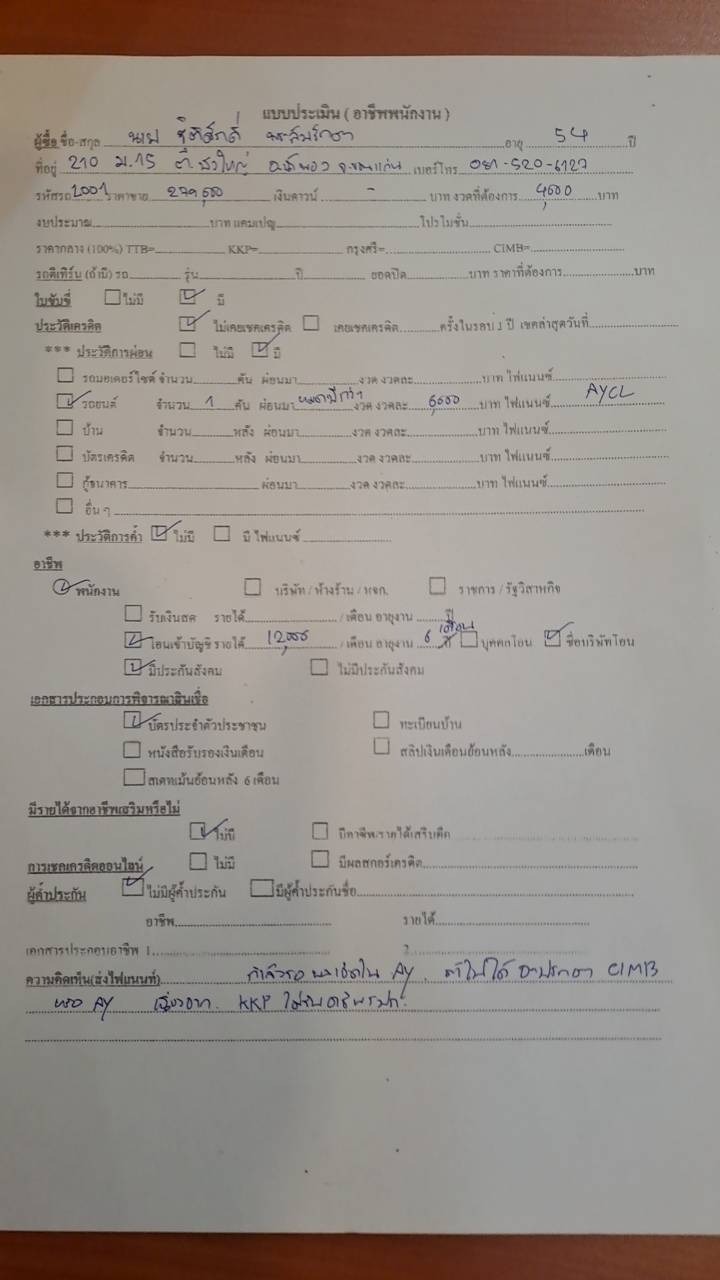 แบบประเมิน ( อาชีพพนักงาน )
ผู้ซื้อ ชื่อ-สกุล นาย อายุ 54 ปี
ที่อยู่ 210 ม.15 ต. บัวใหญ่ อ.น้ำพอง จ.ขอนแก่น เบอร์โทร 081-520-6127
รหัสรถ 2001 ราคาขาย 279,000 เงินดาวน์ - บาท งวดที่ต้องการ 4,000 บาท
งบประมาณ บาท แคมเปญ โปรโมชั่น
ราคากลาง (100%) TTB= KKP= กรุงศรี= CIMB=
รถตีเทิร์น (ถ้ามี) รถ รุ่น ปี ยอดปิด บาท ราคาที่ต้องการ บาท
ใบขับขี่ ไม่มี มี
ประวัติเครดิต ไม่เคยเชคเครดิต เคยเชคเครดิต ครั้งในรอบ 3 ปี เชคล่าสุดวันที่
*** ประวัติการผ่อน ไม่มี มี
รถมอเตอร์ไซค์ จำนวน คัน ผ่อนมา งวด งวดละ บาท ไฟแนนซ์
รถยนต์ จำนวน 1 คัน ผ่อนมา หมดปีกว่า งวด งวดละ 6,000 บาท ไฟแนนซ์ AYCL
บ้าน จำนวน หลัง ผ่อนมา งวด งวดละ บาท ไฟแนนซ์
บัตรเครดิต จำนวน หลัง ผ่อนมา งวด งวดละ บาท ไฟแนนซ์
กู้ธนาคาร ผ่อนมา งวด งวดละ บาท ไฟแนนซ์
อื่น ๆ
*** ประวัติการค้ำ ไม่มี มี ไฟแนนซ์
อาชีพ
พนักงาน บริษัท / ห้างร้าน / หจก. ราชการ / รัฐวิสาหกิจ
รับเงินสด รายได้ / เดือน อายุงาน ปี
โอนเข้าบัญชี รายได้ 12,000 / เดือน อายุงาน 6 เดือน ปี บุคคลโอน ชื่อบริษัทโอน
มีประกันสังคม ไม่มีประกันสังคม
เอกสารประกอบการพิจารณาสินเชื่อ
บัตรประจำตัวประชาชน ทะเบียนบ้าน
หนังสือรับรองเงินเดือน สลิปเงินเดือนย้อนหลัง เดือน
สเตทเม้นย้อนหลัง 6 เดือน
มีรายได้จากอาชีพเสริมหรือไม่
ไม่มี มีอาชีพ/รายได้เสริมคือ
การเชคเครดิตออนไลน์ ไม่มี มีผลสกอร์เครดิต
ผู้ค้ำประกัน ไม่มีผู้ค้ำประกัน มีผู้ค้ำประกันชื่อ
อาชีพ รายได้
เอกสารประกอบอาชีพ 1. 2.
ความคิดเห็น(ส่งไฟแนนท์) AY. ถ้าไม่ได้ CIMB
หรือ AY เนื่องจาก KKP